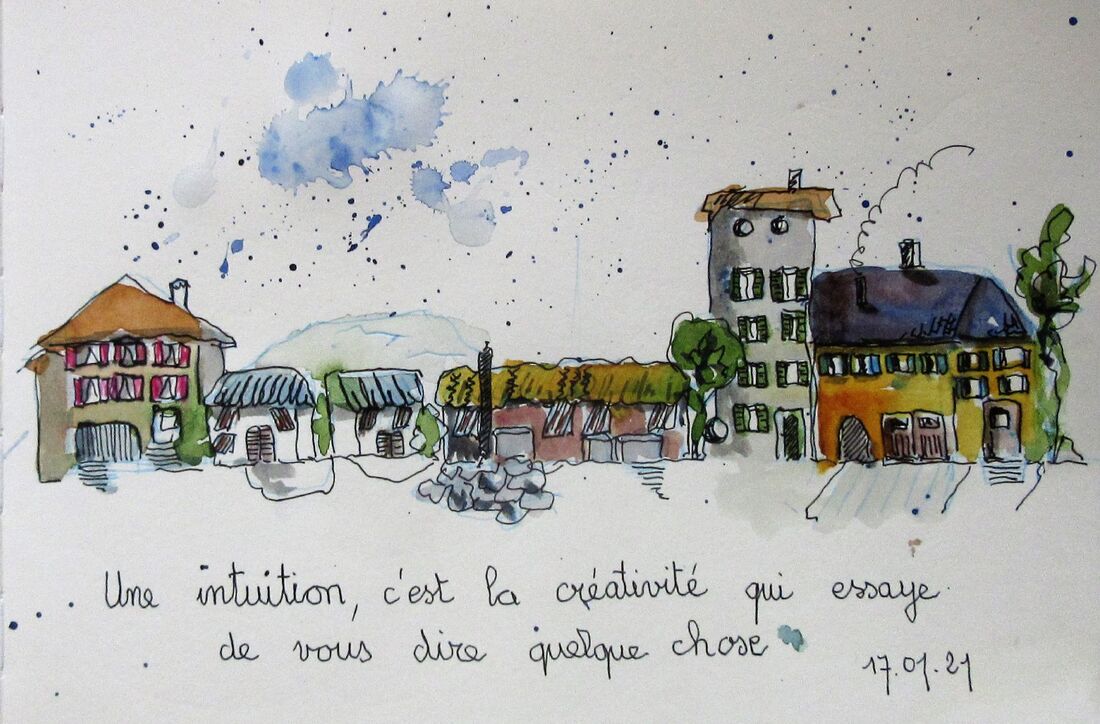 Une intuition, c'est la créativité qui essaye
de vous dire quelque chose
17.01.21